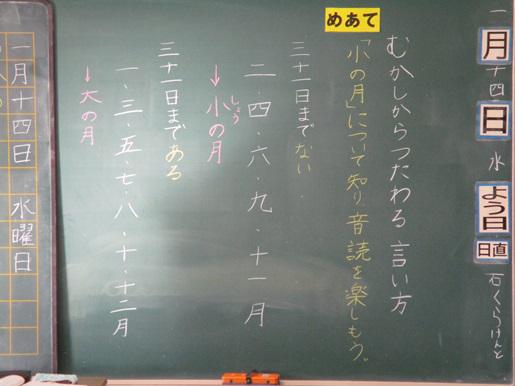 一月十四日水よう日
日直石くらけんと
むかしからつたわる言い方
めあて
「小の月」について知り、音読を楽しもう。
三十一日までない
二・四・六・九・十一月
↓小の月
しょう
三十一日まである
一・三・五・七・八・十・十二月
↓大の月
一月十四日 水曜日